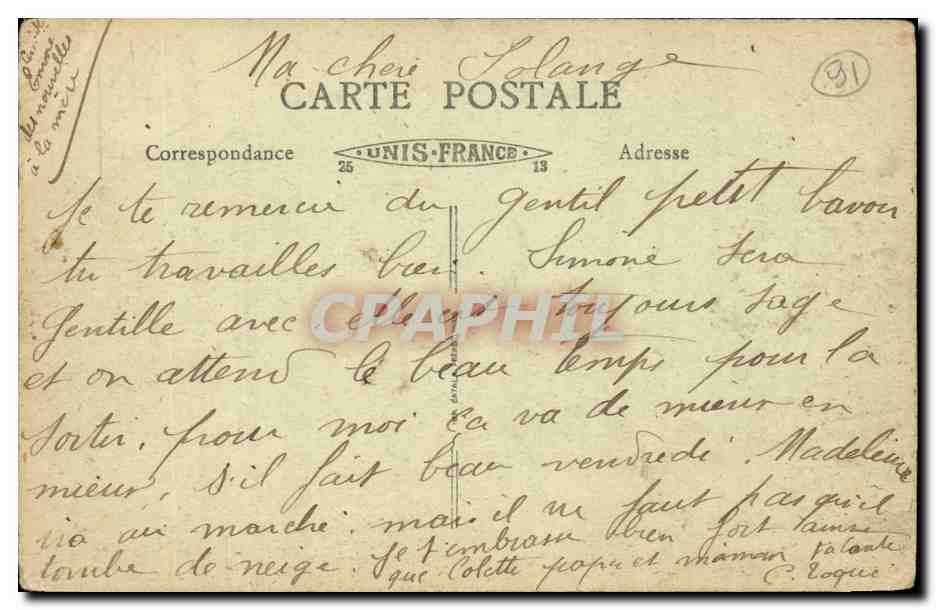 des nouvelles
à la mer
Ma chere Solange
91
CARTE POSTALE
Correspondance
UNIS-FRANCE
25 13
Adresse
Je te remercie du gentil petit bavoir
tu travailles bien. Simone sera
Gentille avec elle est toujours sage
et on attend le beau temps pour la
sortir. pour moi ça va de mieux en
mieux, s'il fait beau vendredi Madeleine
ira au marché. mais il ne faut pas qu'il
tombe de neige. Je t'embrasse bien fort ainsi
que Colette papa et maman
CPAPHIL